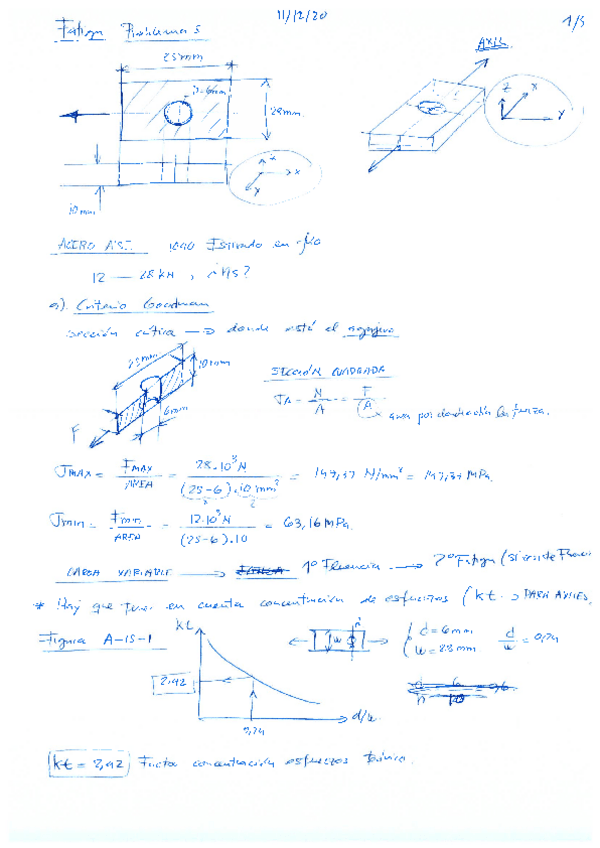 11/12/20
1/5
Fatiga Problema 5
25mm
D=6mm
28mm
10mm
AXIS
z
x
y
x
ACERO AISI 1040 Estirado en frío
12 — 28 kN, ¿ηs?
a). Criterio Goodman
sección crítica → donde está el agujero
25mm
10mm
6mm
F
SECCIÓN CUADRADA
σA = N/A = F/A
σMAX = FMAX/AREA = 28·10³N/(25-6)·10 mm² = 147,37 N/mm² = 147,37 MPa.
σmin = Fmin/AREA = 12·10³N/(25-6)·10 = 63,16 MPa.
CARGA VARIABLE → 1º Fluencia → 2º Fatiga
* Hay que tener en cuenta concentración de esfuerzos (kt → PARA AXIES,
Figura A-15-1
kt
2,42
0,24
d/w
w
d = 6mm
w = 25mm
d/w = 0,24
kt = 2,42 Factor concentración esfuerzos teórico.